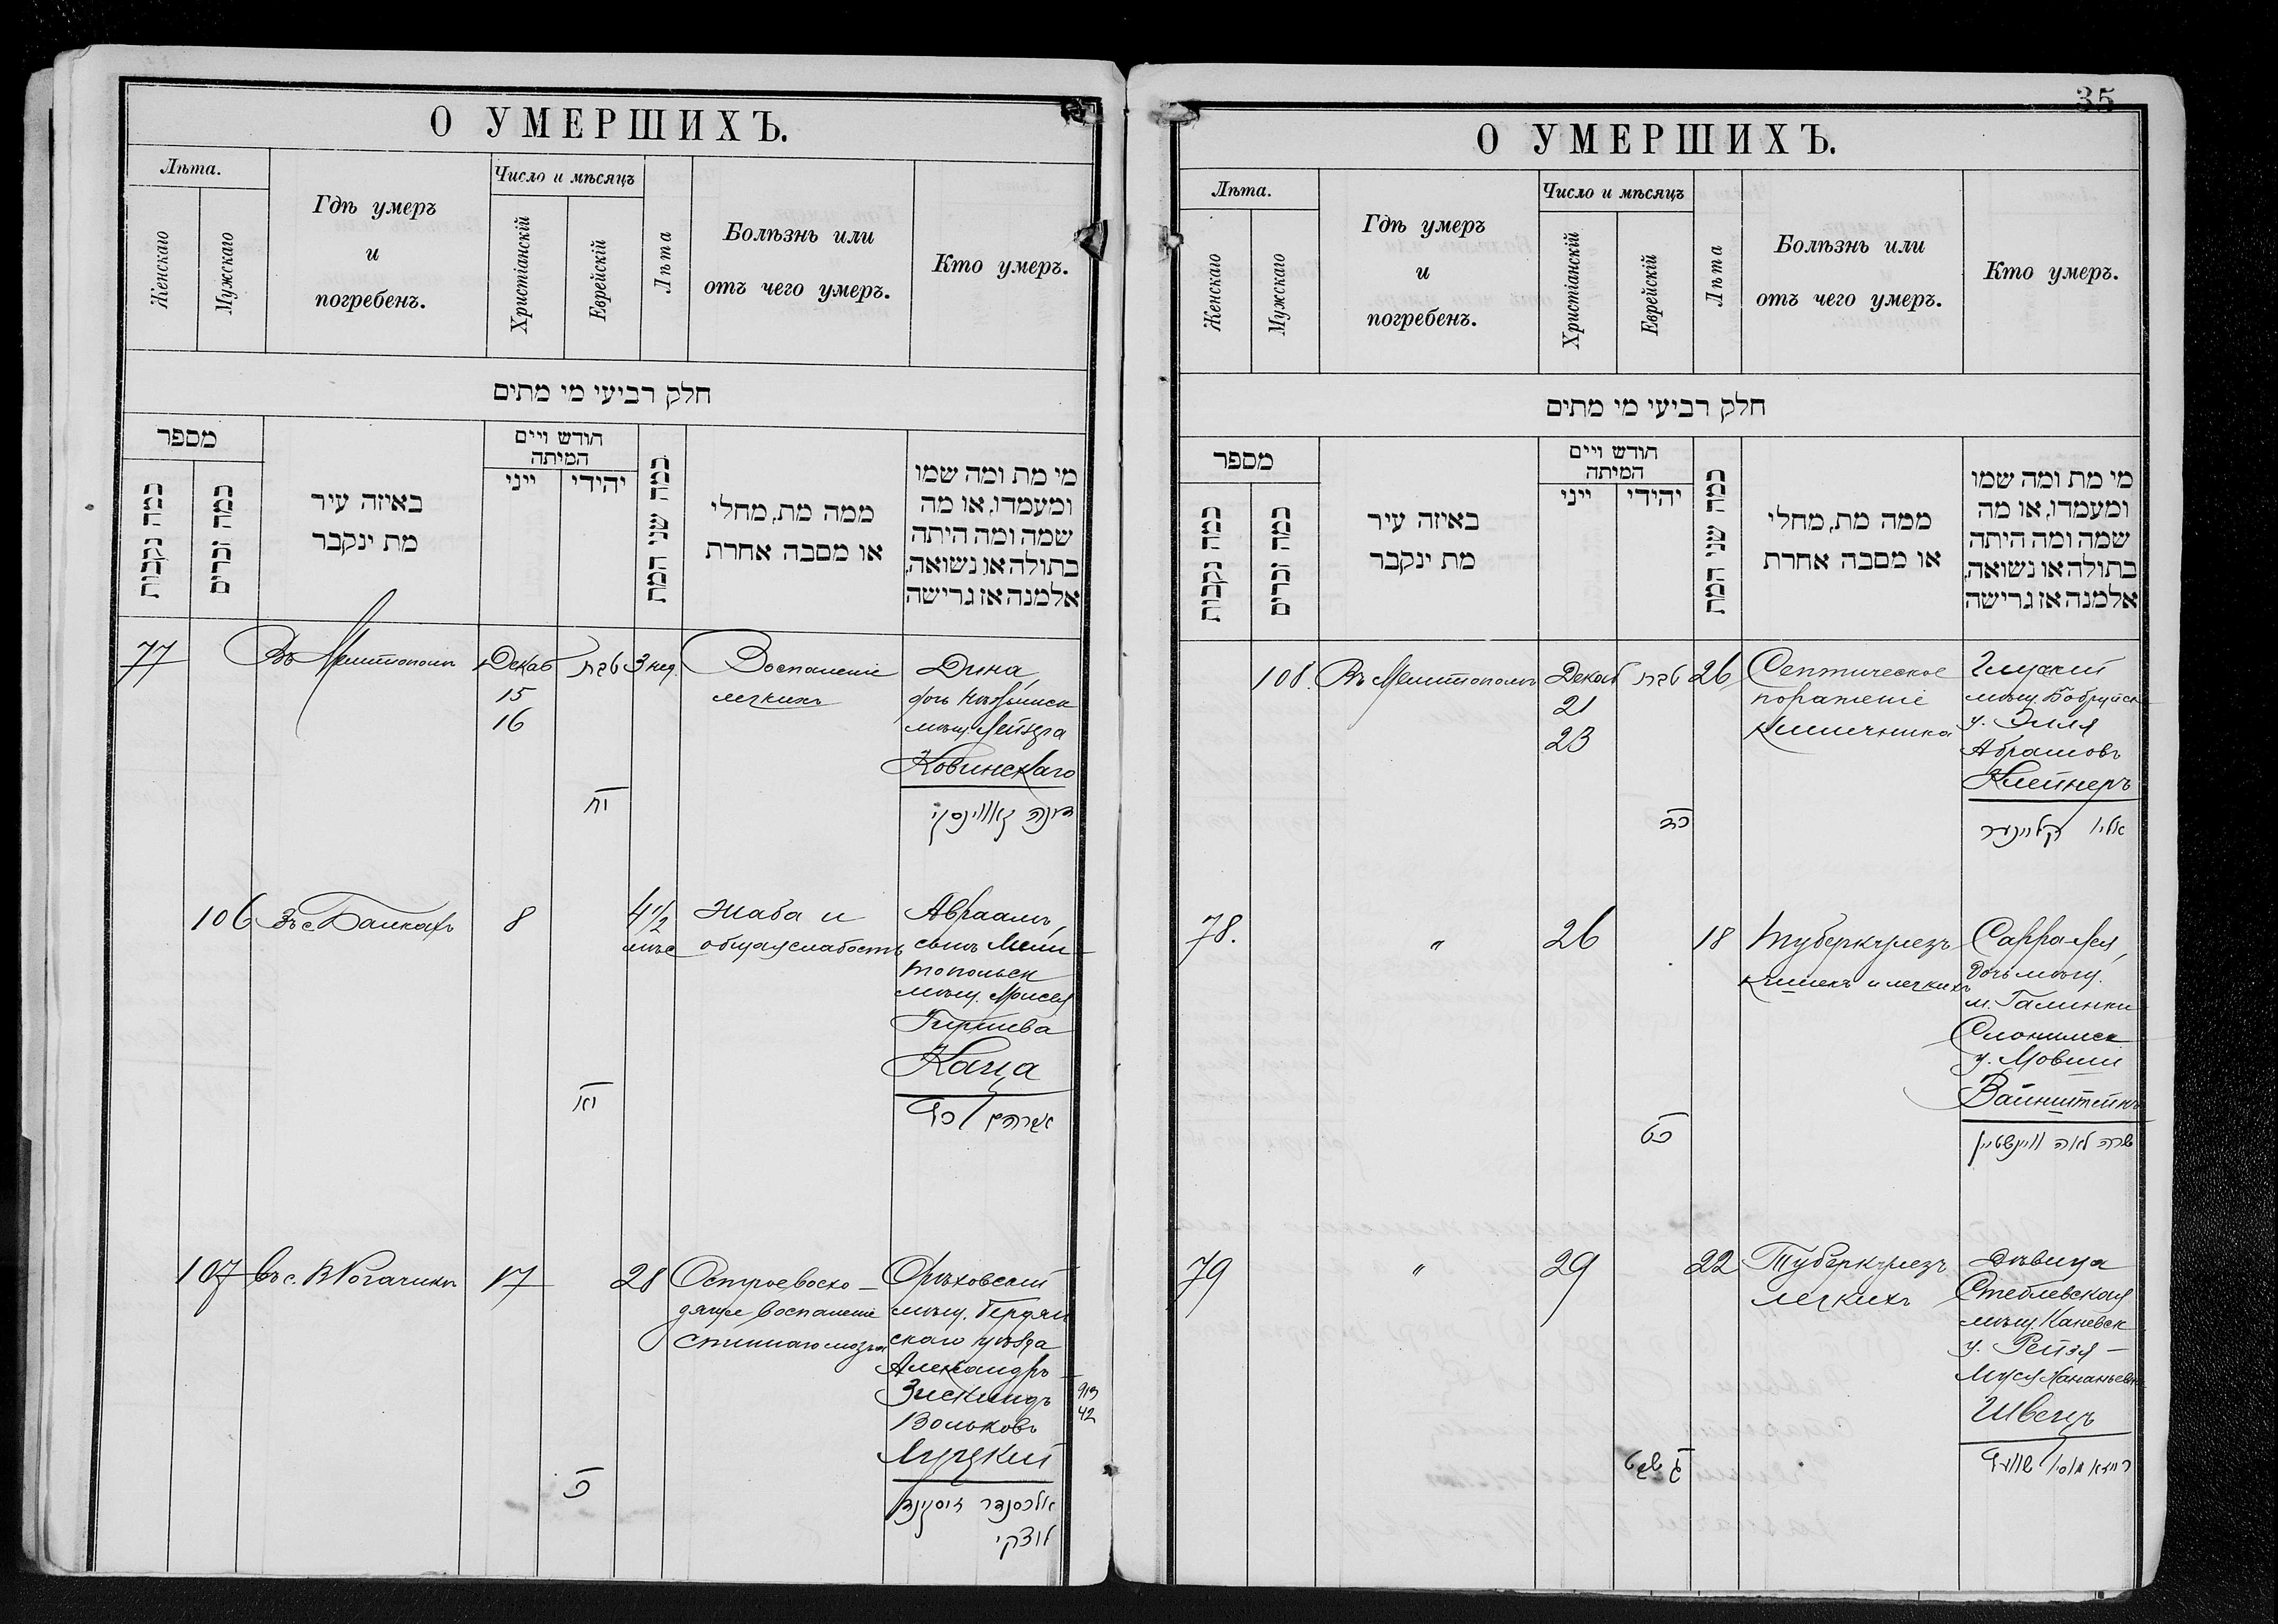 О УМЕРШИХЪ.
Лѣта.
Женскаго
Мужскаго
Гдѣ умеръ
и
погребенъ.
Число и мѣсяцъ
Христіанскій
Еврейскій
Лѣта
Болѣзнь или
отъ чего умеръ.
Кто умеръ.
חלק רביעי מי מתים
מספר
כמה נקבות
כמה זכרים
באיזה עיר
מת ינקבר
חודש ויים
המיתה
ייני
יהודי
כמה שני המת
ממה מת, מחלי
או מסבה אחרת
מי מת ומה שמו
ומעמדו, או מה
שמה ומה היתה
בתולה או נשואה,
אלמנה אז גרישה
77
Въ Мелитополѣ
Декаб
15
16
טבת
יח
3 нед.
Воспаленіе
легкихъ
Дина,
дочь
мѣщ. Лейзера
Ковинскаго
דינה קאווינסקי
106
Въ с. Балкахъ
8
יא
4½
мѣс
Жаба и
общая слабость
Авраамъ,
сынъ Мели-
топольск
мѣщ. Моисея
Гиршева
Каца
אברהם כץ
107
Въ с. В Рогачикѣ
17
כ
28
Острое восхо-
дящее воспаленіе
спиннаго мозга
Орѣховскій
мѣщ. Бердян
скаго уѣзда
Александръ-
Зискиндъ
Вольковъ
Луцкій
אלכסנדר זיסקינד
לוצקי
913
42
35
О УМЕРШИХЪ.
Лѣта.
Женскаго
Мужскаго
Гдѣ умеръ
и
погребенъ.
Число и мѣсяцъ
Христіанскій
Еврейскій
Лѣта
Болѣзнь или
отъ чего умеръ.
Кто умеръ.
חלק רביעי מי מתים
מספר
כמה נקבות
כמה זכרים
באיזה עיר
מת ינקבר
חודש ויים
המיתה
ייני
יהודי
כמה שני המת
ממה מת, מחלי
או מסבה אחרת
מי מת ומה שמו
ומעמדו, או מה
שמה ומה היתה
בתולה או נשואה,
אלמנה אז גרישה
108.
Въ Мелитополѣ
Декаб
21
23
טבת
כד
26
Септическое
пораженіе
кишечника
Глускій
мѣщ. Бобруйск
у. Элія
Абрамовъ
Клейнеръ
אליו קליינער
78.
"
26
כט
18
Туберкулезъ
кишекъ и легкихъ
Сарра-Лея,
дочь мѣщ.
м. Галинки
Слонимск
у. Мовши
Вайнштейнъ
שרה לאה וויינשטיין
79
"
29
ב שבט
22
Туберкулезъ
легкихъ
Дѣвица
Стеблевская
мѣщ. Каневск
у. Рейзя-
Муся Хананьевна
Швецъ
רייזא מוסי שוועץ